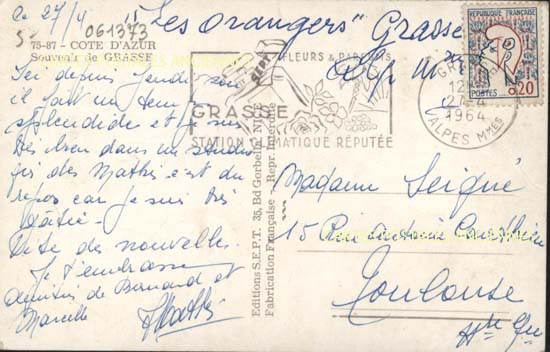 Le 27/4
061373
"Les orangers" Grasse
75-87 - COTE D'AZUR
Souvenir de GRASSE
Ici depuis jeudi soir
il fait un temps
splendide et je suis
très bien dans un studio
des Mathis est du
repos car je suis très
Vite de nouvelle.
Je t'embrasse
amitiés de Bernard et
Marcelle
Mathis
FLEURS & PARFUMS
GRASSE
STATION CLIMATIQUE RÉPUTÉE
REPUBLIQUE FRANÇAISE
POSTES 0,20
12
27-4
1964
ALPES MMES
Editions S.E.P.T. 35, Bd Gorbella, NICE
Fabrication Française - Repr. Interdite
Madame Seigné
15 Rue Antoine
Toulouse
Hte Gne